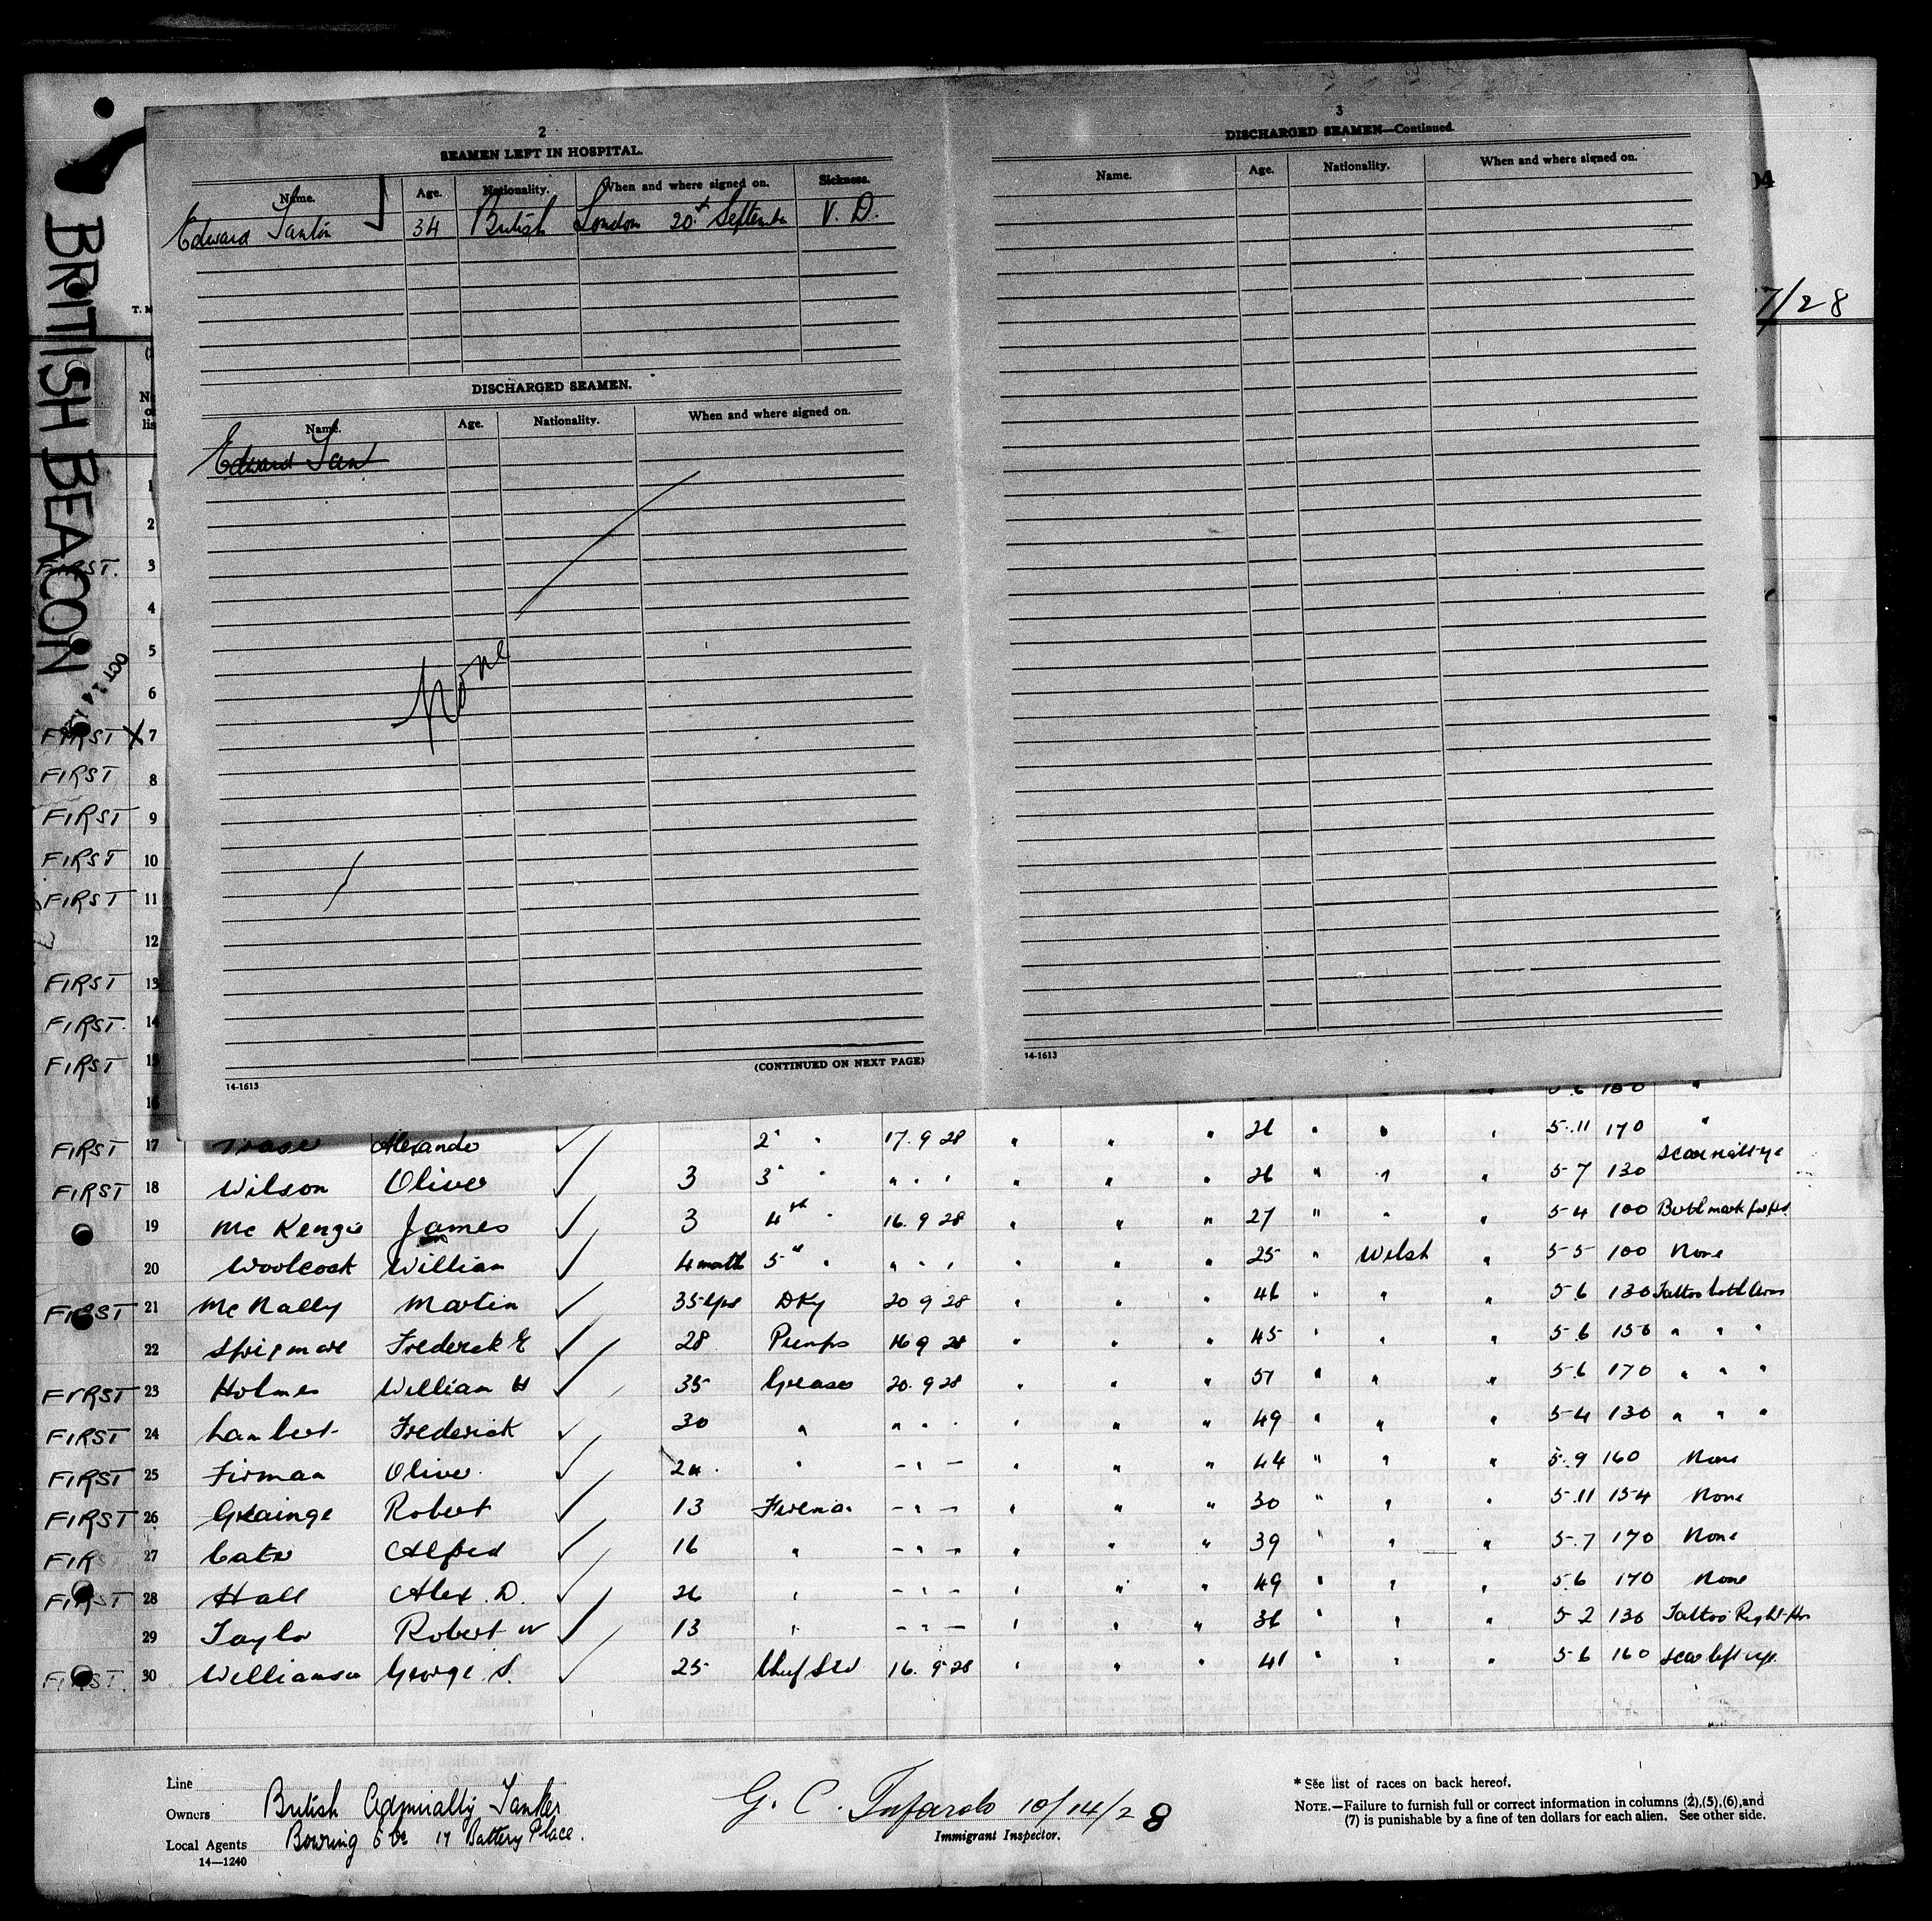 BRITISH BEACON
OCT 14
2
SEAMEN LEFT IN HOSPITAL.
Name. Age. Nationality. When and where signed on. Sickness.
Edward 34 British London 20 V. D.
DISCHARGED SEAMEN.
Name. Age. Nationality. When and where signed on.
Edward
None
(CONTINUED ON NEXT PAGE)
14-1613
3
DISCHARGED SEAMEN—Continued.
Name. Age. Nationality. When and where signed on.
14-1613
04
7/28
1
2
FIRST. 3
4
5
6
FIRST X 7
FIRST 8
FIRST 9
FIRST 10
FIRST 11
12
FIRST 13
FIRST. 14
FIRST 15
16
FIRST 17 2" " 17. 9 28 " " " 26 " " " 5.11 170 "
FIRST 18 Wilson Oliver ✓ 3 3" " " " " " " " 26 " " " 5-7 130
19 Mc Kenzie James ✓ 3 4th " 16. 9 28 " " " 27 " " " 5-4 100
20 Woolcock William ✓ 4 month 5" " " " " " " " 25 " Welsh " 5-5 100 None
FIRST 21 Mc Nally Martin ✓ 35 DKy 20 9 28 " " " 46 " " " 5.6 130
22 Frederick E ✓ 28 16 9 28 " " " 45 " " " 5.6 " " "
FIRST 23 Holmes William H ✓ 35 Greaser 20. 9 28 " " " 51 " " " 5.6 170 " " "
FIRST 24 Lambert Frederick ✓ 30 " " " " " " " 49 " " " 5-4 130 " " "
FIRST 25 Firman Oliver. ✓ " - " - " " " 44 " " " 5.9 160 None
FIRST 26 Robert ✓ 13 - " - " " " 30 " " " 5.11 154 None
FIR 27 Alfred ✓ 16 " - " - " " " 39 " " " 5.7 170 None
FIRST 28 Hall Alex. D. ✓ 26 " - " - " " " 49 " " " 5.6 170 None
29 Taylor Robert W ✓ 13 " - " - " " " 36 " " " 5-2 130 Tattoo Right
FIRST. 30 George S. ✓ 25 Chief Std 16. 9 28 " " " 41 " " " 5-6 160
Line
Owners British Admiralty Tanker
Local Agents Bowring & Co 17 Battery Place.
14—1240
G. C. 10/14/28
Immigrant Inspector.
* See list of races on back hereof.
NOTE.—Failure to furnish full or correct information in columns (2),(5),(6),and
(7) is punishable by a fine of ten dollars for each alien. See other side.